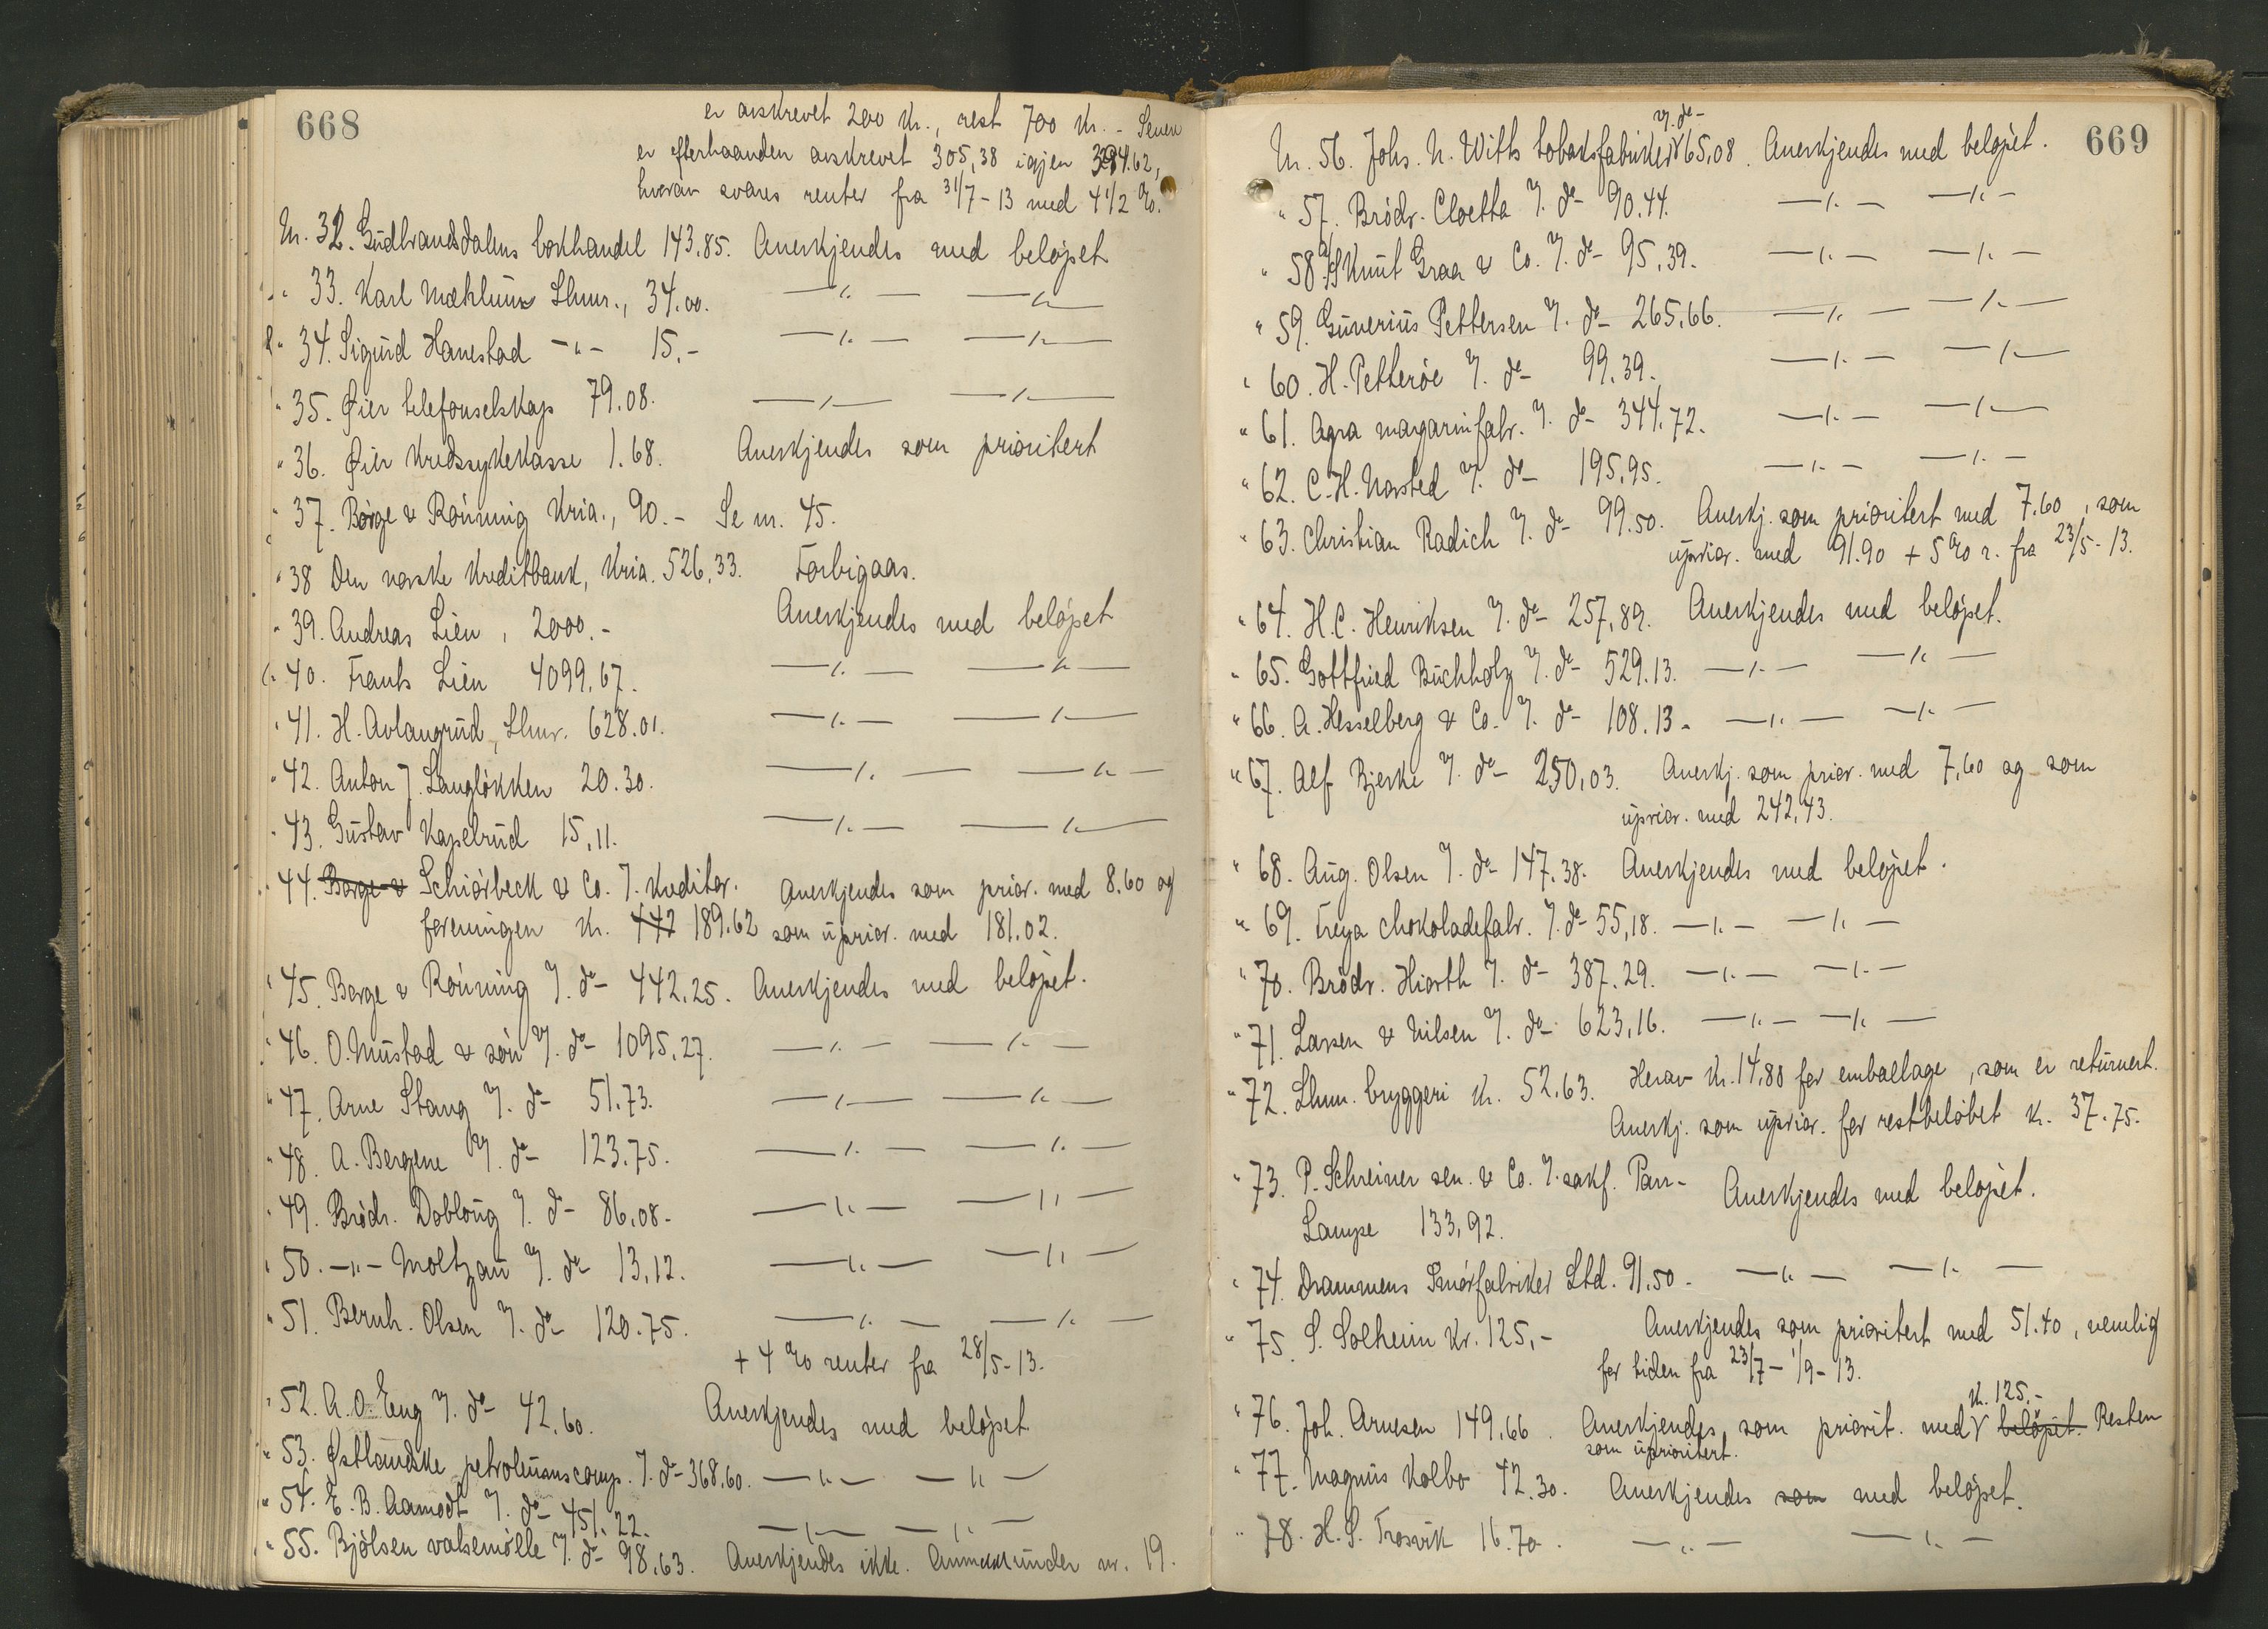 668
er avskrevet 200 kr., rest 700 kr. - Senere
er efterhaanden avskrevet 305,38 igjen 394.62,
hvorav svares renter fra 31/7-13 med 4 1/2 %.
Nr. 32. Gudbrandsdalens bokhandel 143.85. Anerkjendes med beløpet
" 33. Karl Mæhlum Lhmr., 34.00. —"— —"—
" 34. Sigurd Hanestad —"— 15.- —"— —"—
" 35. Øier telefonselskap 79.08. —"— —"—
" 36. Øier kredssykekasse 1.68. Anerkjendes som prioritert
" 37. Børge & Rønning Kria., 90.- Se nr. 45.
" 38 Den norske Kreditbank, Kria. 526,33. Forbigaas.
" 39. Andreas Lien, 2000.- Anerkjendes med beløpet
" 40. Frants Lien 4099,67. —"— —"—
" 41. H. Avlangrud, Lhmr. 628.01. —"— —"—
" 42. Anton J. Langløkken 20.30. —"— —"—
" 43. Gustav Kapelrud 15,11. —"— —"—
" 44. Borge & Schiørbeck & Co. v. Kreditor. Anerkjendes som prior. med 8.60 og
foreningen kr. 442 189.62 som uprior. med 181.02.
" 45. Borge & Rønning v. do- 442.25. Anerkjendes med beløpet.
" 46. O. Mustad & søn v. do- 1095.27. —"— —"—
" 47. Arne Stang v. do- 51.73. —"— —"—
" 48. A. Bergene v. do- 123.75. —"— —"—
" 49. Brødr. Dobloug v. do- 86.08- —"— —"—
" 50. —"— Moltzau v. do- 13,12. —"— —"—
" 51. Bernh. Olsen v. do- 120.75. —"— —"—
+ 4 % renter fra 28/5-13.
" 52. A.O. Eng v. do- 42.60. Anerkjendes med beløpet
" 53. Østlandske petroleumscomp. v. do- 368.60. —"— —"—
" 54. E.B. Aamodt v. do- 451.22. —"— —"—
" 55. Bjølsen valsemølle v. do- 98,63. Anerkjendes ikke. Anmeldt under nr. 19.
669
v. do-
Nr. 56. Johs. N. Witts tobaksfabriker 165,08. Anerkjendes med beløpet.
" 57. Brødr. Cloetta v. do- 90.44. —"— —"—
" 58. A/S Knut Graa & Co. v. do- 95,39. —"— —"—
" 59. Gunerius Pettersen v. do- 265,66. —"— —"—
" 60. H. Petterøe v. do- 99,39. —"— —"—
" 61. Agra margarinfabr. v. do- 344.72. —"— —"—
" 62. C.H. Norsted v. do- 195,95. —"— —"—
" 63. Christian Radich v. do- 99.50. Anerkj. som prioritert med 7.60, som
uprior. med 91.90 + 5 % r. fra 23/5-13.
" 64. H.C. Henriksen v. do- 257,89. Anerkjendes med beløpet.
" 65. Gottfried Buchholz v. do- 529.13. —"— —"—
" 66. A. Hesselberg & Co. v. do- 108.13- —"— —"—
" 67. Alf Bjerke v. do- 250,03. Anerkj. som prior. med 7,60 og som
uprior. med 242,43.
" 68. Aug. Olsen v. do- 147.38. Anerkjendes med beløpet.
" 69. Freya chokoladefabr. v. do- 55,18. —"— —"—
" 70. Brødr. Hiorth v. do- 387.29. —"— —"—
" 71. Larsen & Nilsen v. do- 623,16. —"— —"—
" 72. Lhmr. bryggeri kr. 52.63. Herav kr. 14,88 for emballage, som er returnert.
Anerkj. som uprior. for restbeløbet kr. 37.75.
" 73. P. Schreiner sen. & Co. v. sakf. Parr- Anerkjendes med beløpet.
Lampe 133,92.
" 74. Drammens Smørfabriker Ltd. 91.50- —"— —"—
" 75. S. Solheim Kr. 125,- Anerkjendes som prioritert med 51.40, nemlig
for tiden fra 23/7 - 1/9-13.
kr. 125.-
" 76. Joh. Arnesen 149,66. Anerkjendes som priorit. med beløpet. Resten
som uprioritert.
" 77. Magnus Kolbo 42.30. Anerkjendes som med beløpet.
" 78. H.S. Trosvik 16.70. —"— —"—